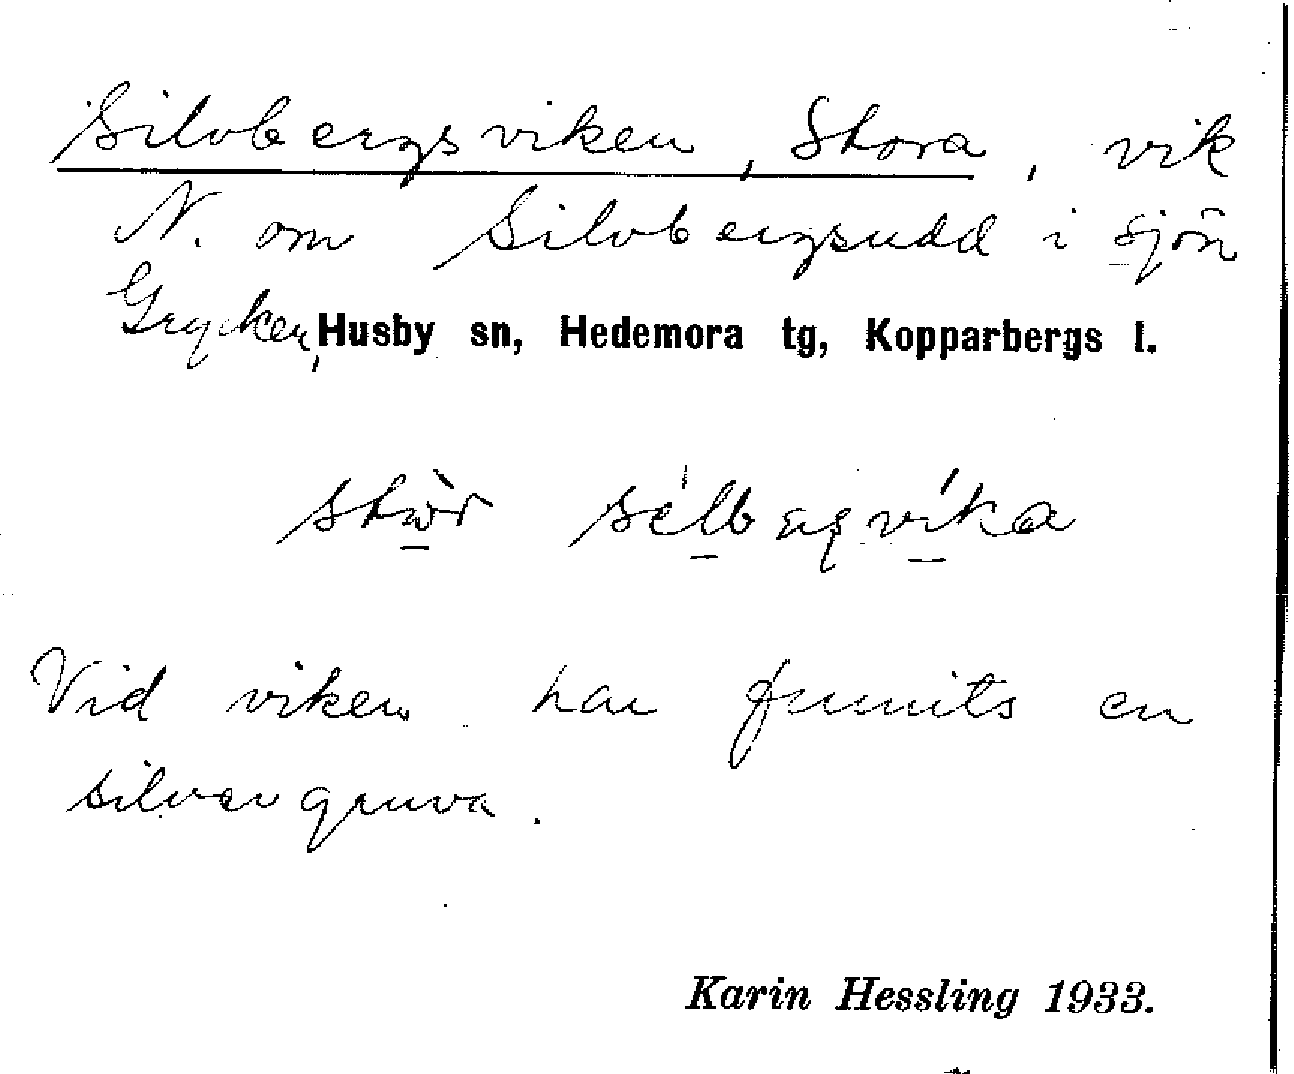 Silvbergsviken, Stora, vik
N. om Silvbergsudd i sjön
Grycken, Husby sn, Hedemora tg, Kopparbergs l.
Vid viken har funnits en
silvergruva.
Karin Hessling 1933.